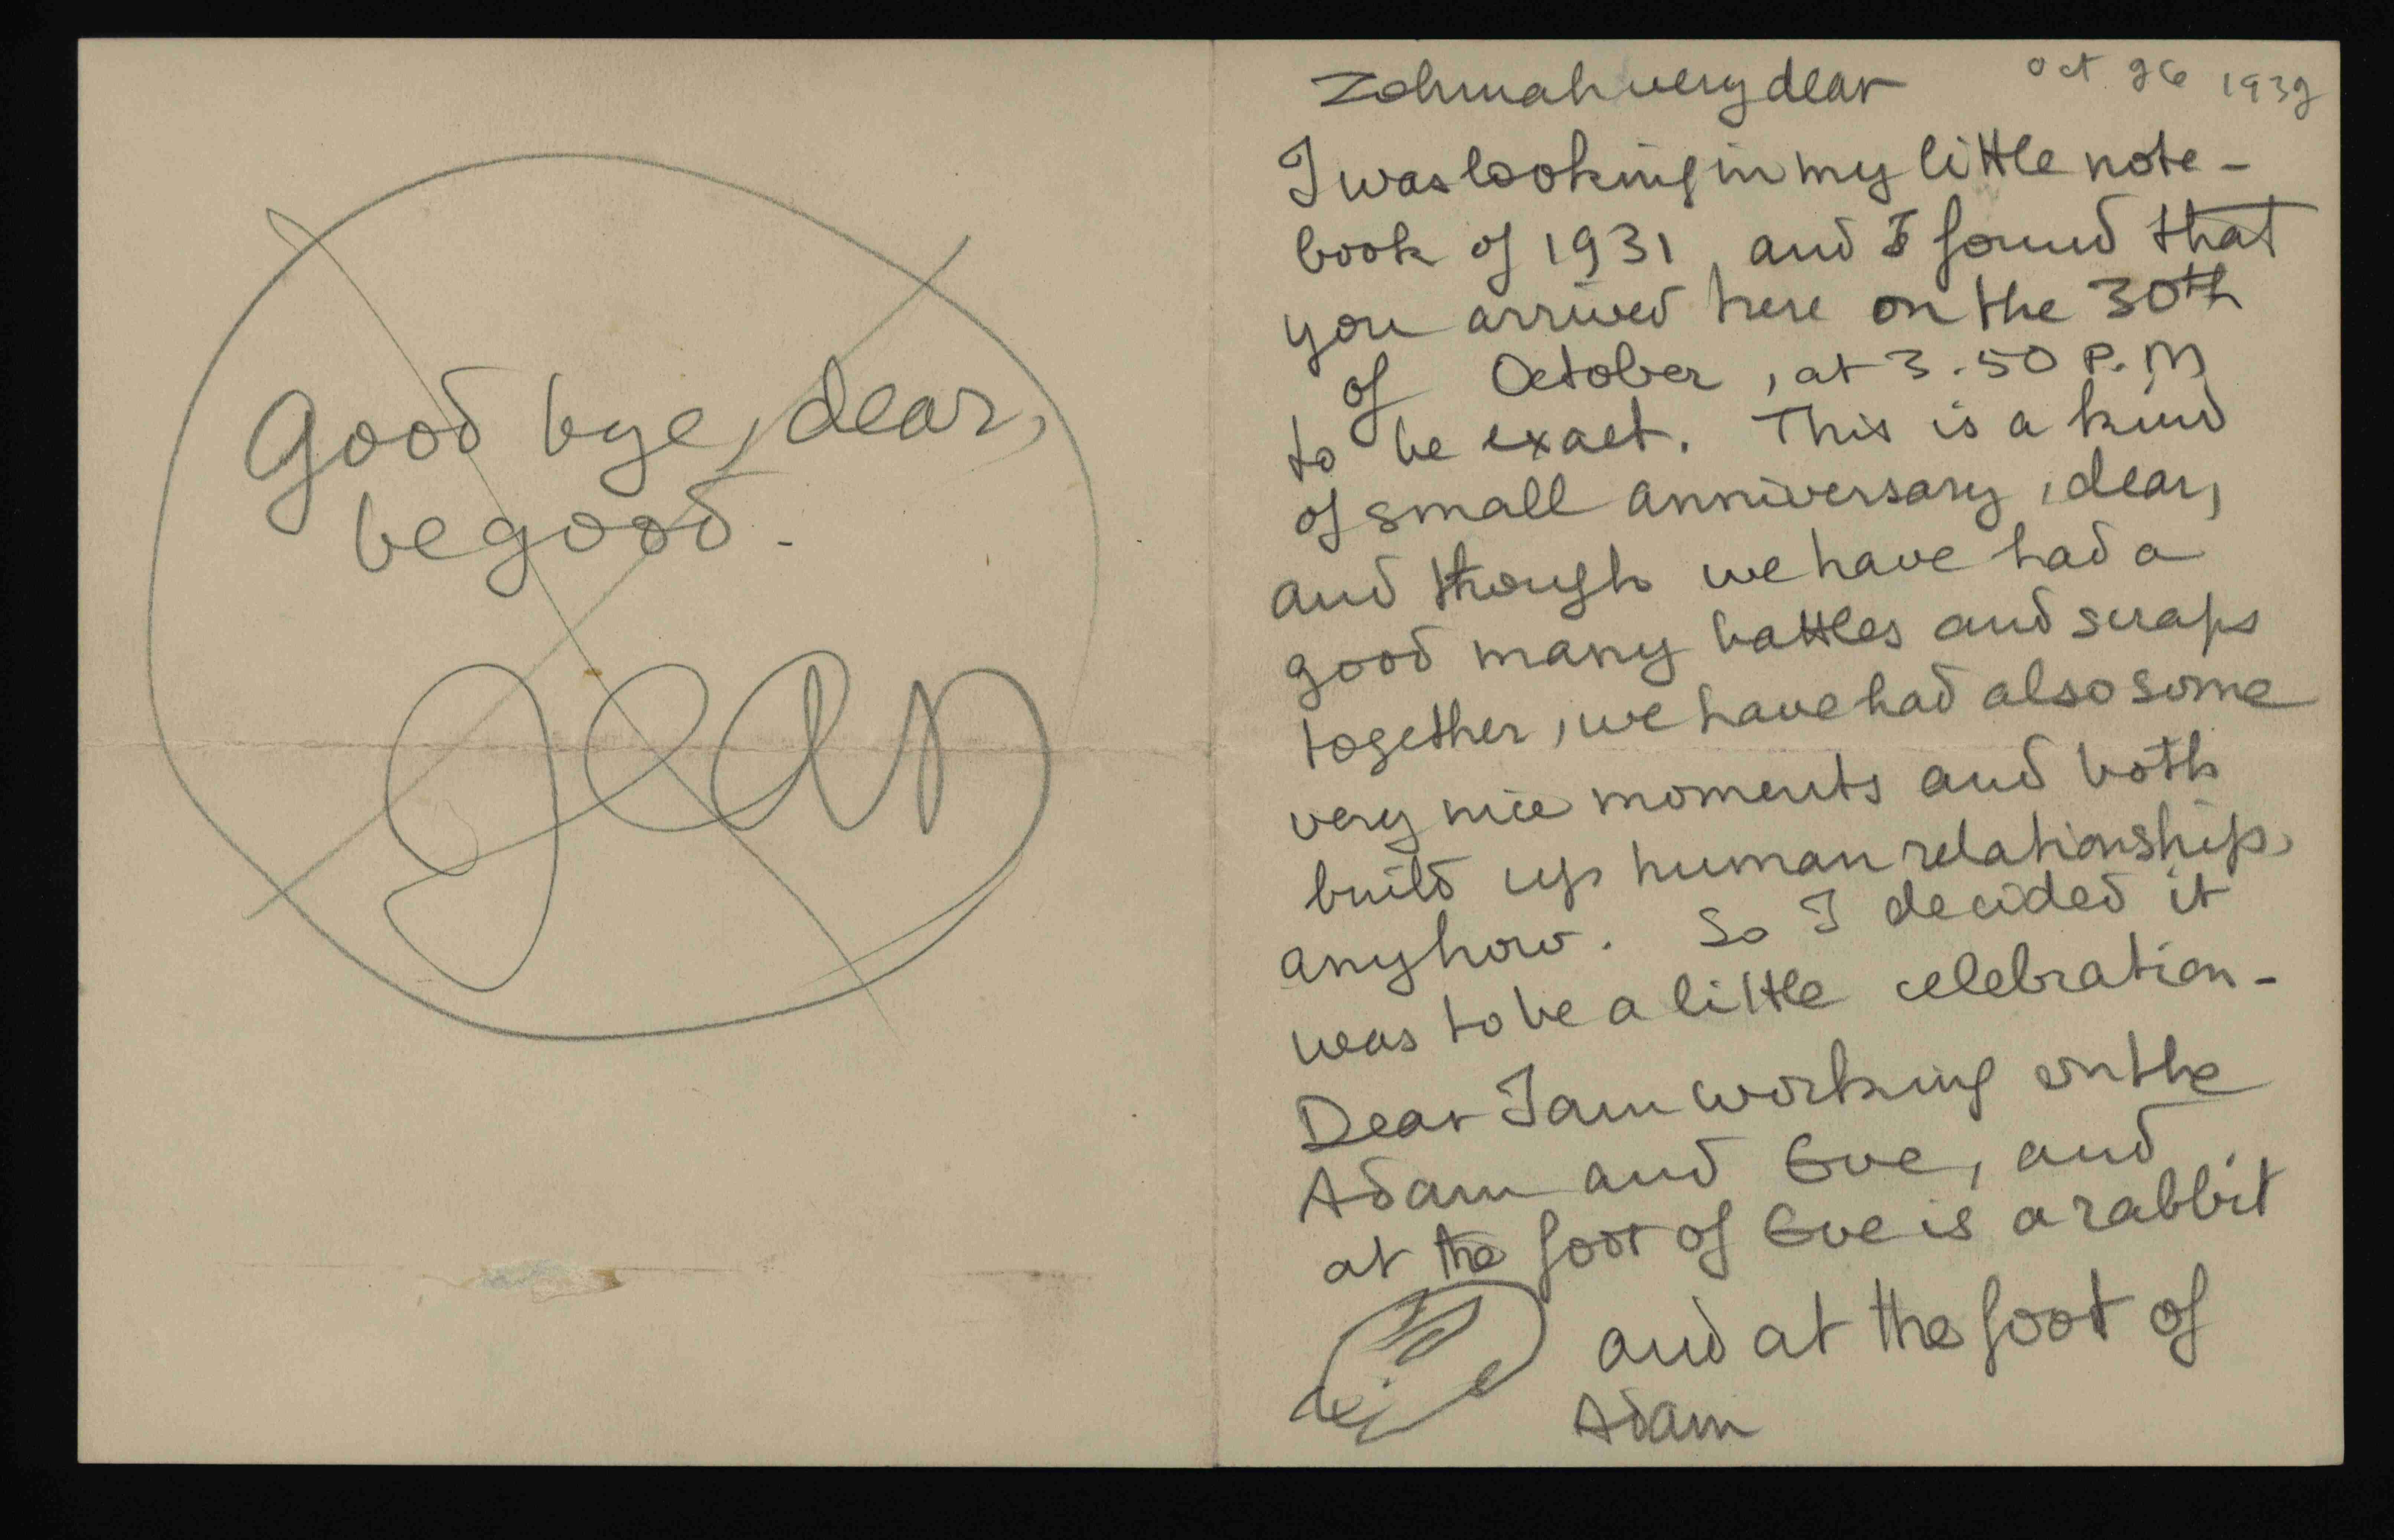 Good bye, dear,
be good.
Jean
Zohmah very dear
Oct 26 1932
I was looking in my little note-
book of 1931, and I found that
you arrived here on the 30th
of October, at 3.50 P.M
to be exact. This is a kind
of small anniversary, dear,
and though we have had a
good many battles and scraps
together, we have had also some
very nice moments and both
build up human relationship,
anyhow. So I decided it
was to be a little celebration-
Dear I am working on the
Adam and Eve, and
at the foot of Eve is a rabbit
and at the foot of
Adam